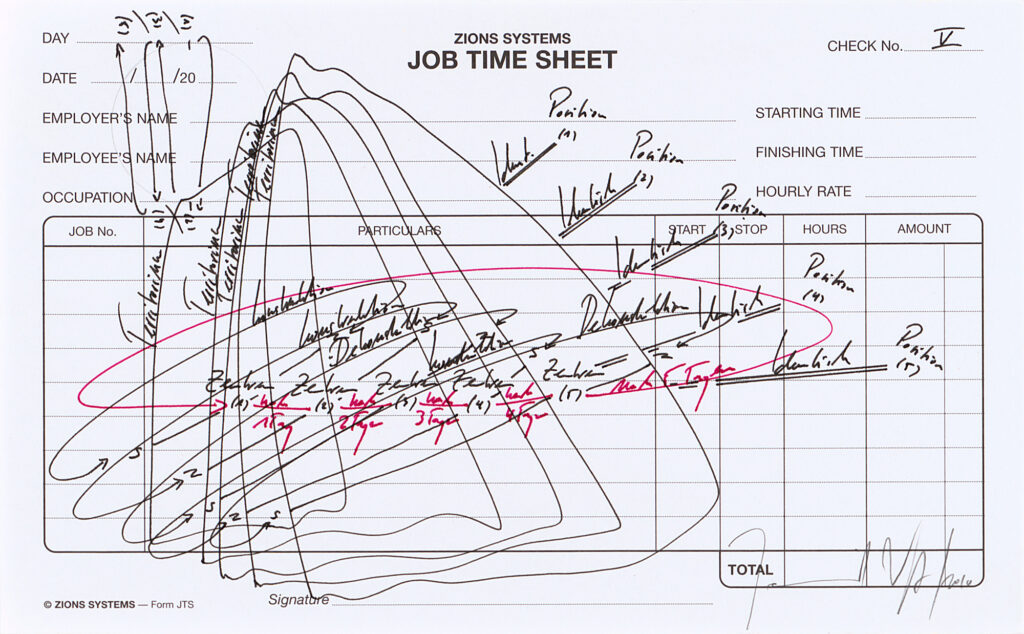 (3) (2) (1)
ZIONS SYSTEMS
DAY
JOB TIME SHEET
CHECK No. V
DATE / /20
EMPLOYER'S NAME
Position
(1)
STARTING TIME
EMPLOYEE'S NAME
Ident.
Position
(2)
FINISHING TIME
OCCUPATION
Identisch
Position
(3)
HOURLY RATE
JOB No. PARTICULARS START STOP HOURS AMOUNT
Identisch
Position
(4)
Konstruktion
Konstruktion
Dekonstruktion
Identisch
Dekonstruktion
Konstruktion
Position
(5)
Identisch
Zentrum Zentrum Zentrum Zentrum Zentrum
(1) nach (2) nach (3) nach (4) nach (5) nach 5 Tagen
1 Tag 2 Tagen 3 Tagen 4 Tagen
TOTAL
Signature
© ZIONS SYSTEMS — Form JTS